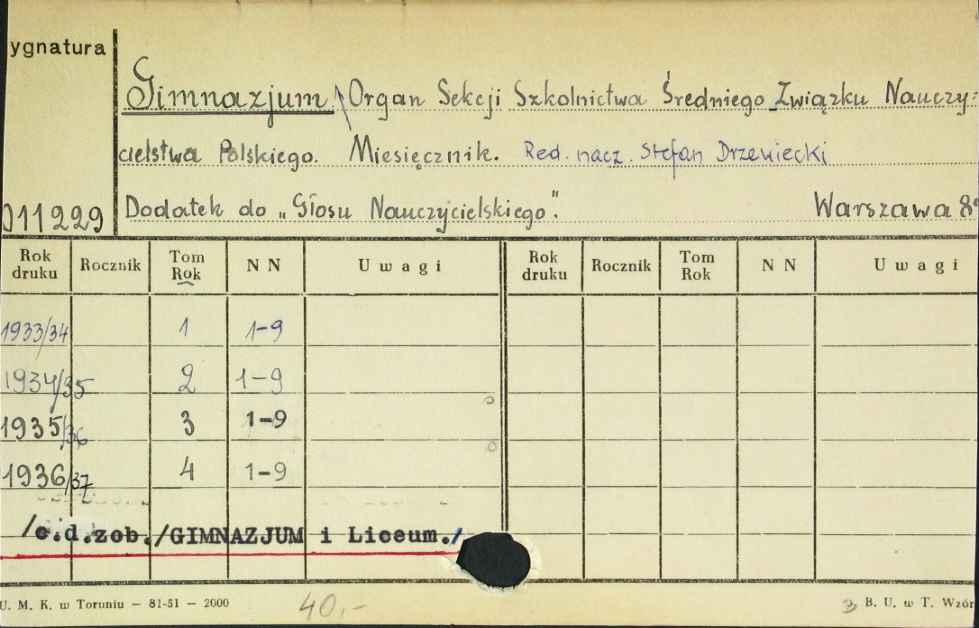 ygnatura
Gimnazjum / Organ Sekcji Szkolnictwa Średniego Związku Nauczy-
cielstwa Polskiego. Miesięcznik. Red. nacz. Stefan Drzewiecki
011229 Dodatek do „Głosu Nauczycielskiego". Warszawa 8°
Rok druku Rocznik Tom Rok N N Uwagi Rok druku Rocznik Tom Rok N N Uwagi
1933/34 1 1-9
1934/35 2 1-9
1935/36 3 1-9
1936/37 4 1-9
/c.d.zob./GIMNAZJUM i Liceum./
U. M. K. w Toruniu — 81-51 — 2000 40.- B. U. w T. Wzór